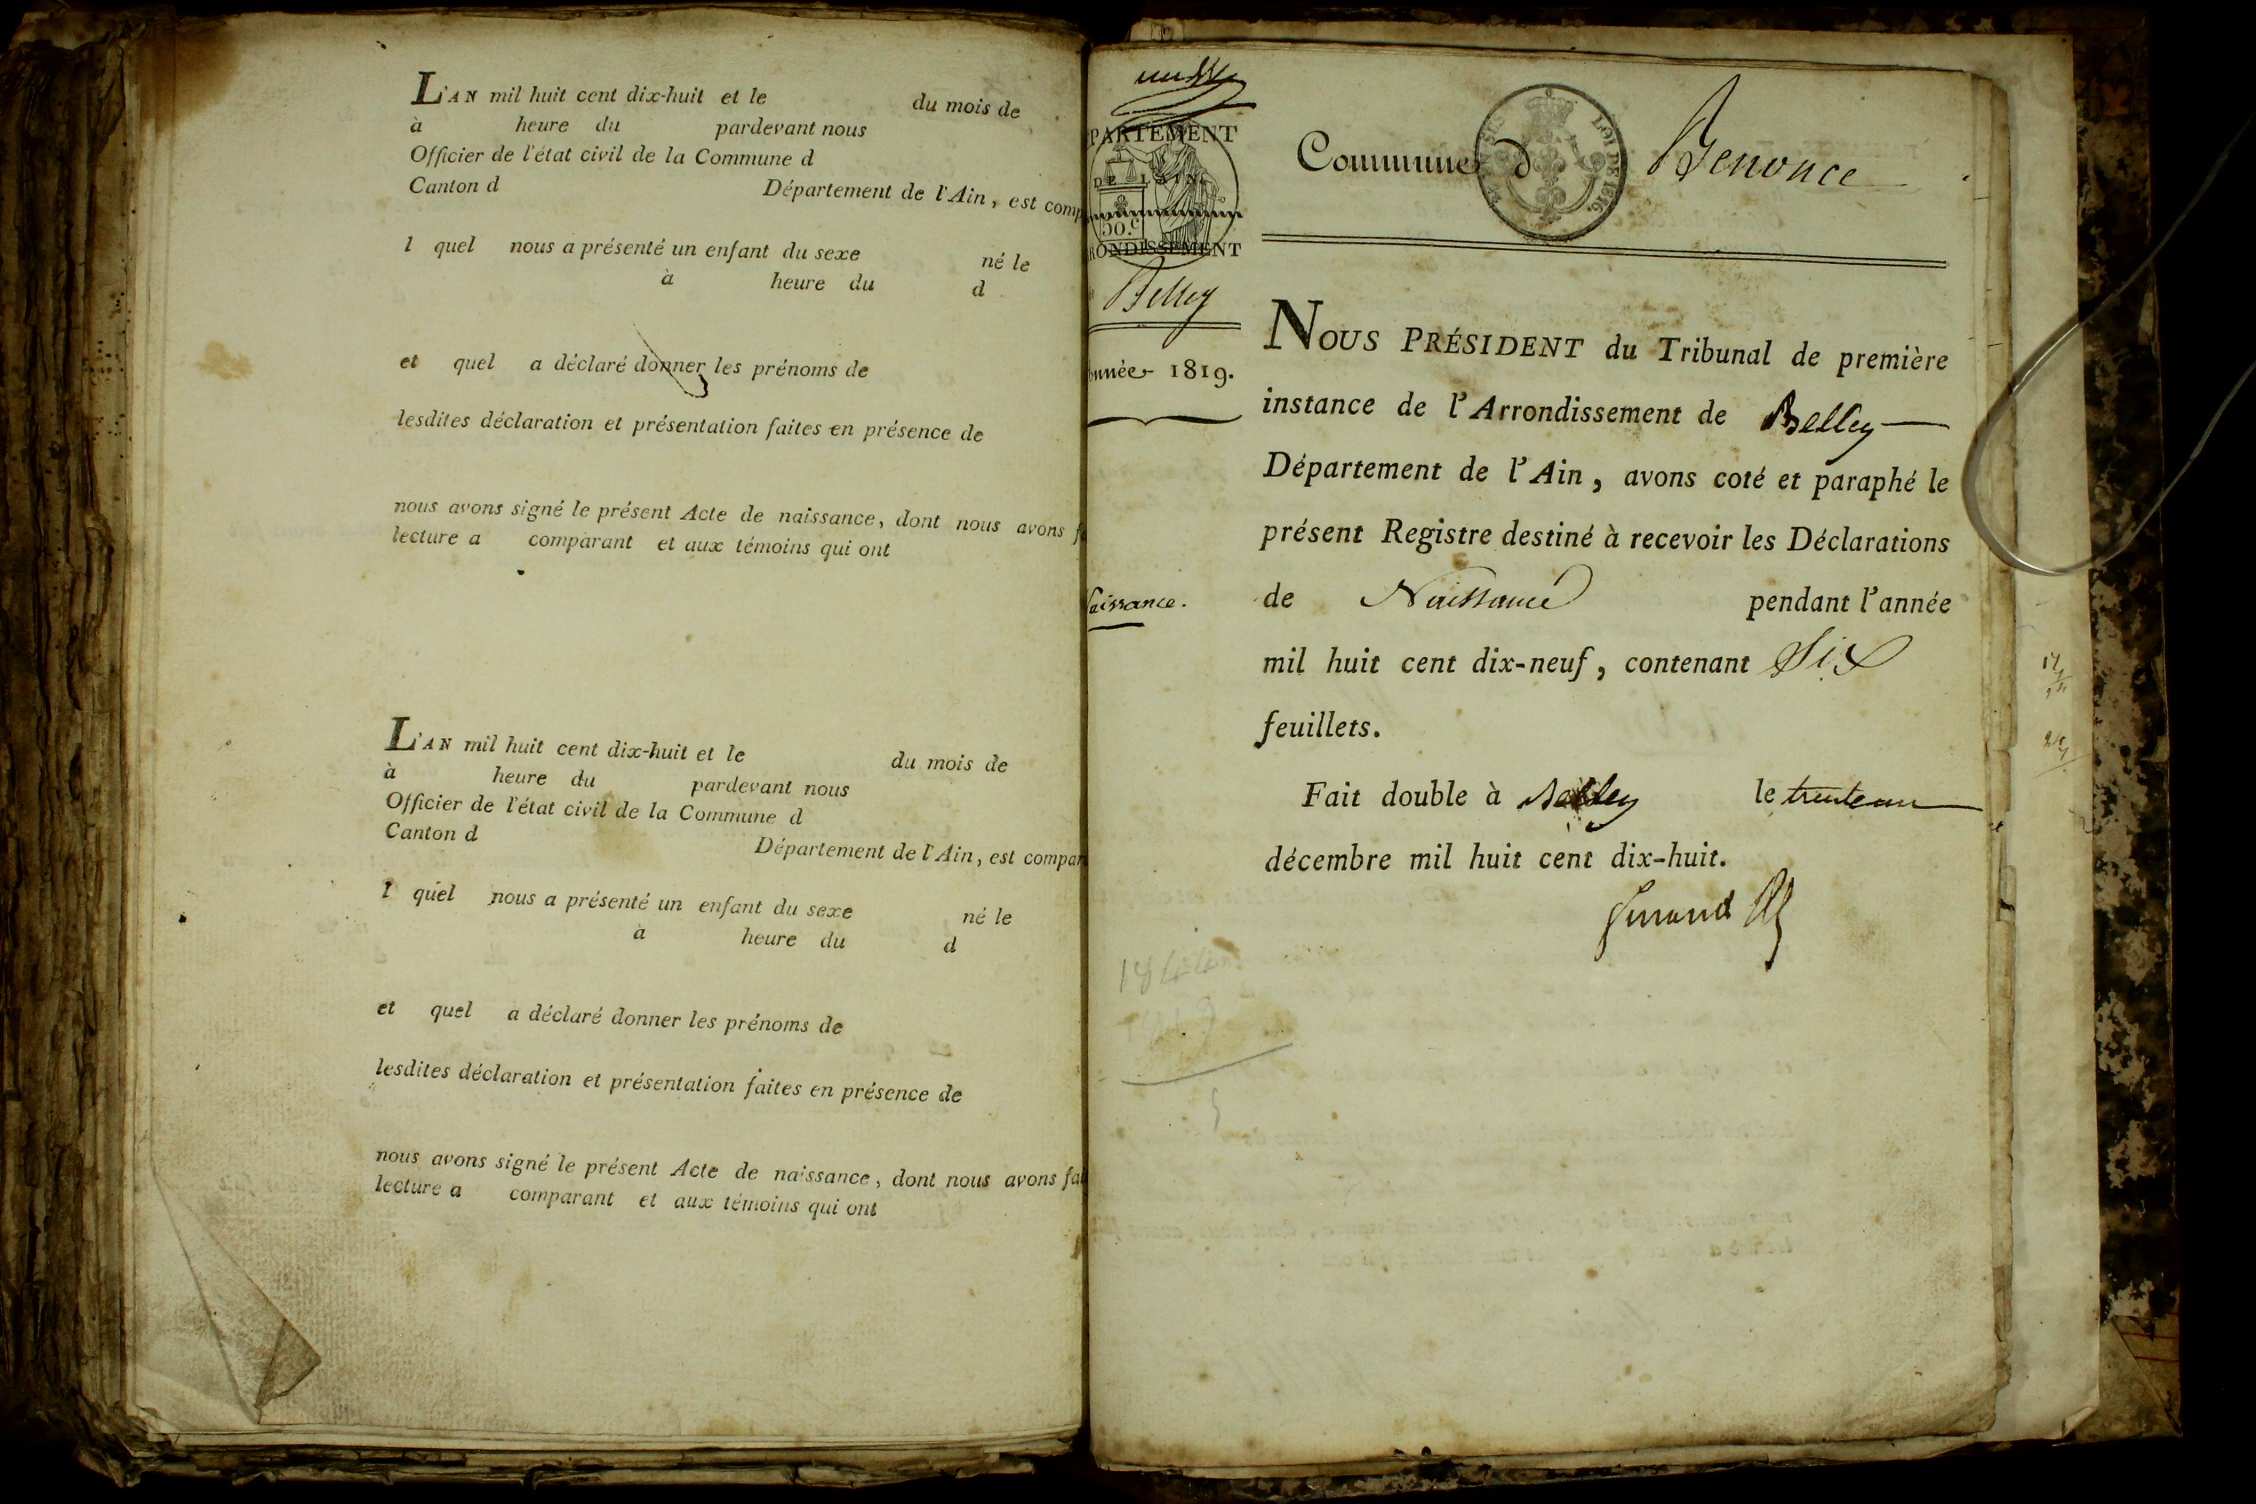 L'AN mil huit cent dix-huit et le du mois de
à heure du pardevant nous
Officier de l'état civil de la Commune d
Canton d Département de l'Ain, est comp
l quel nous a présenté un enfant du sexe né le
à heure du d
et quel a déclaré donner les prénoms de
lesdites déclaration et présentation faites en présence de
nous avons signé le présent Acte de naissance, dont nous avons f
lecture a comparant et aux témoins qui ont
L'AN mil huit cent dix-huit et le du mois de
à heure du pardevant nous
Officier de l'état civil de la Commune d
Canton d Département de l'Ain, est compar
l quel nous a présenté un enfant du sexe né le
à heure du d
et quel a déclaré donner les prénoms de
lesdites déclaration et présentation faites en présence de
nous avons signé le présent Acte de naissance, dont nous avons fai
lecture a comparant et aux témoins qui ont
PARTEMENT
DE L'AIN
50.c
RONDISSEMENT
Belley
nnée 1819.
aissance.
Commune d Benonce
LOI DE 1816.
NOUS PRÉSIDENT du Tribunal de première
instance de l'Arrondissement de Belley
Département de l'Ain, avons coté et paraphé le
présent Registre destiné à recevoir les Déclarations
de Naissance pendant l'année
mil huit cent dix-neuf, contenant Six
feuillets.
Fait double à Belley le trente un
décembre mil huit cent dix-huit.